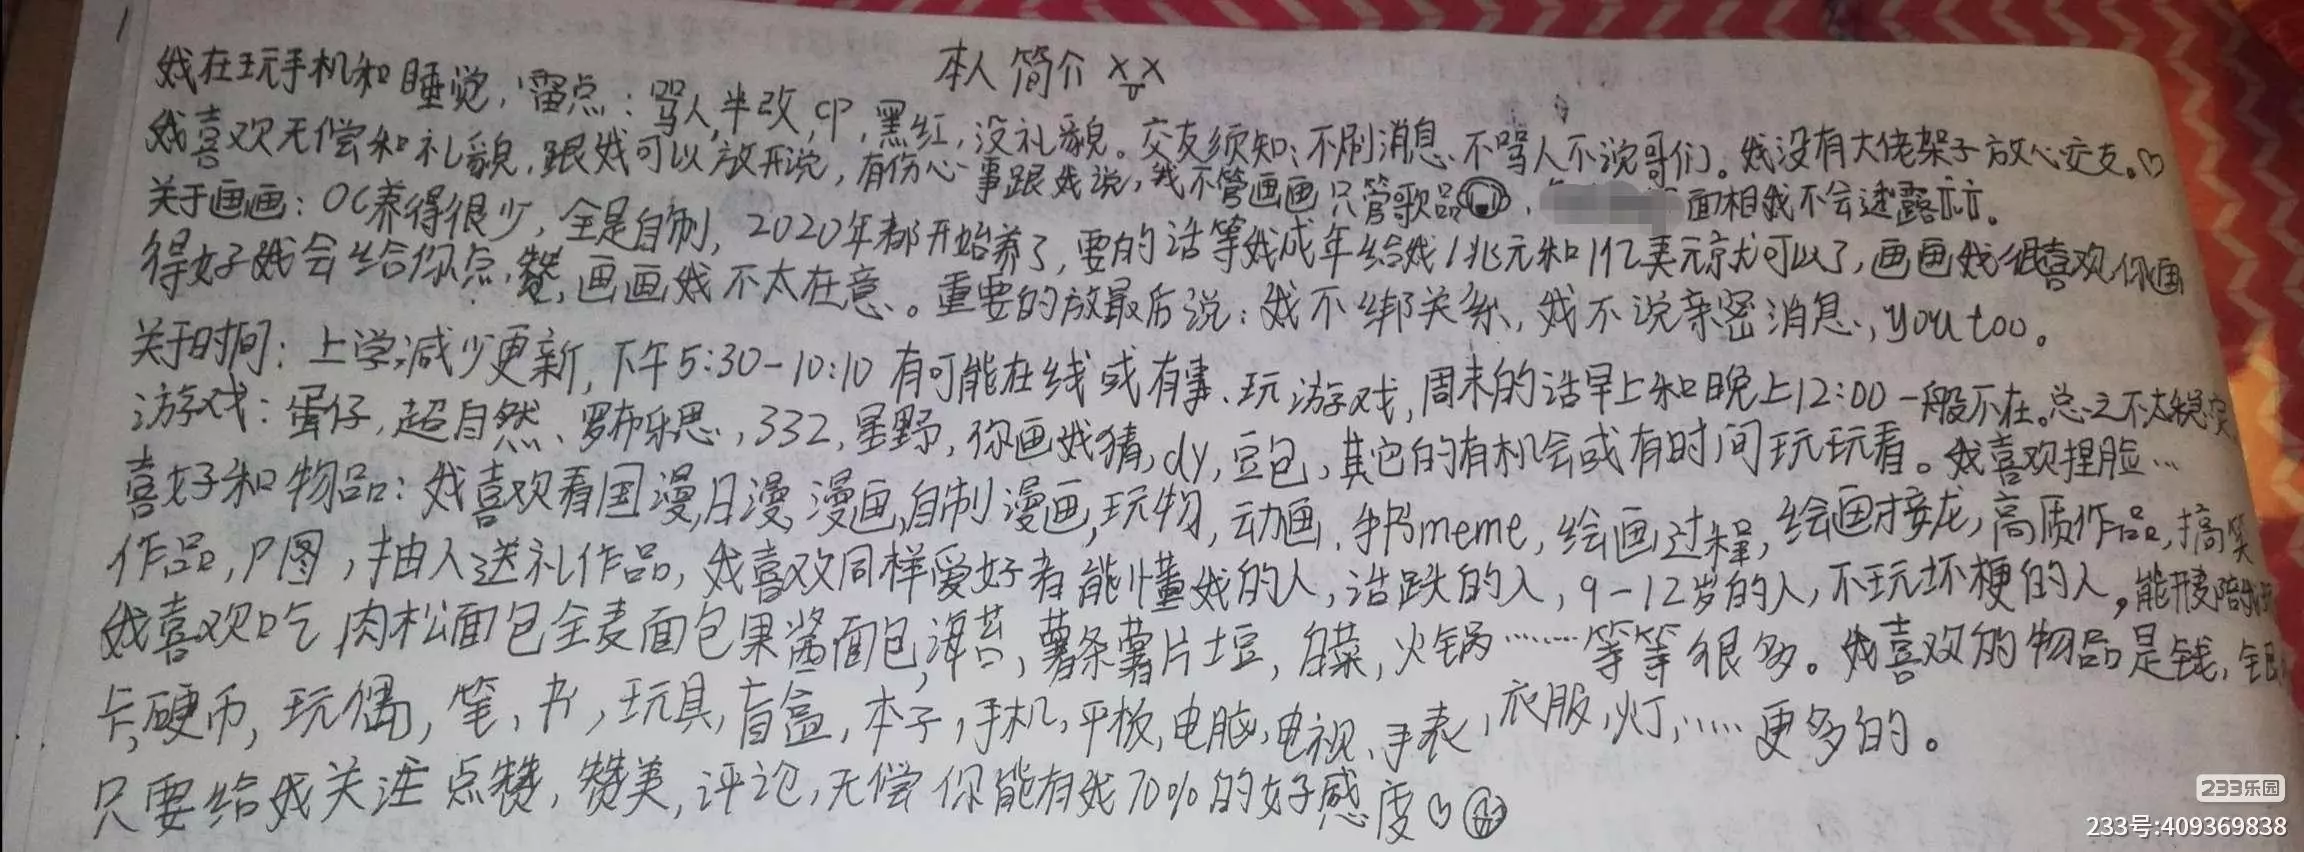 1
本人简介 x x
娀在玩手机和睡觉,雷点:骂人,半改,cp,黑红,没礼貌。交友须知:不刷消息、不骂人不说哥们。娀没有大佬架子放心交友。♡
娀喜欢无偿和礼貌,跟娀可以放开说,有伤心事跟娀说,我不管画画只管歌品 , 面相娀不会透露
关于画画:OC养得很少,全是自制,2020年都开始养了,要的话等娀成年给娀1兆元和1亿美元就可以了,画画娀很喜欢你画
得好娀会给你点赞,画画娀不太在意。重要的放最后说:娀不绑关系,娀不说亲密消息,you too。
关于时间:上学减少更新,下午5:30-10:10有可能在线或有事、玩游戏,周末的话早上和晚上12:00一般不在。总之不太稳定
游戏:蛋仔,超自然、罗布乐思,332,星野,你画娀猜,dy,豆包,其它的有机会或有时间玩玩看。娀喜欢捏脸…
喜好和物品:娀喜欢看国漫,日漫,漫画,自制漫画,玩物,动画,手书meme,绘画过程,绘画接龙,高质作品,搞笑
作品,P图,抽人送礼作品,娀喜欢同样爱好者能懂娀的人,话跌的人,9-12岁的人,不玩坏梗的人,能陪娀
娀喜欢吃肉松面包全麦面包果酱面包,海苔,薯条薯片土豆,白菜,火锅……等等很多。娀喜欢的物品是钱,银
卡,硬币,玩偶,笔,书,玩具,盲盒,本子,手机,平板,电脑,电视,手表,衣服,灯,……更多的。
只要给娀关注点赞,赞美,评论,无偿你能有娀70%的好感度♡
233乐园
233号:409369838